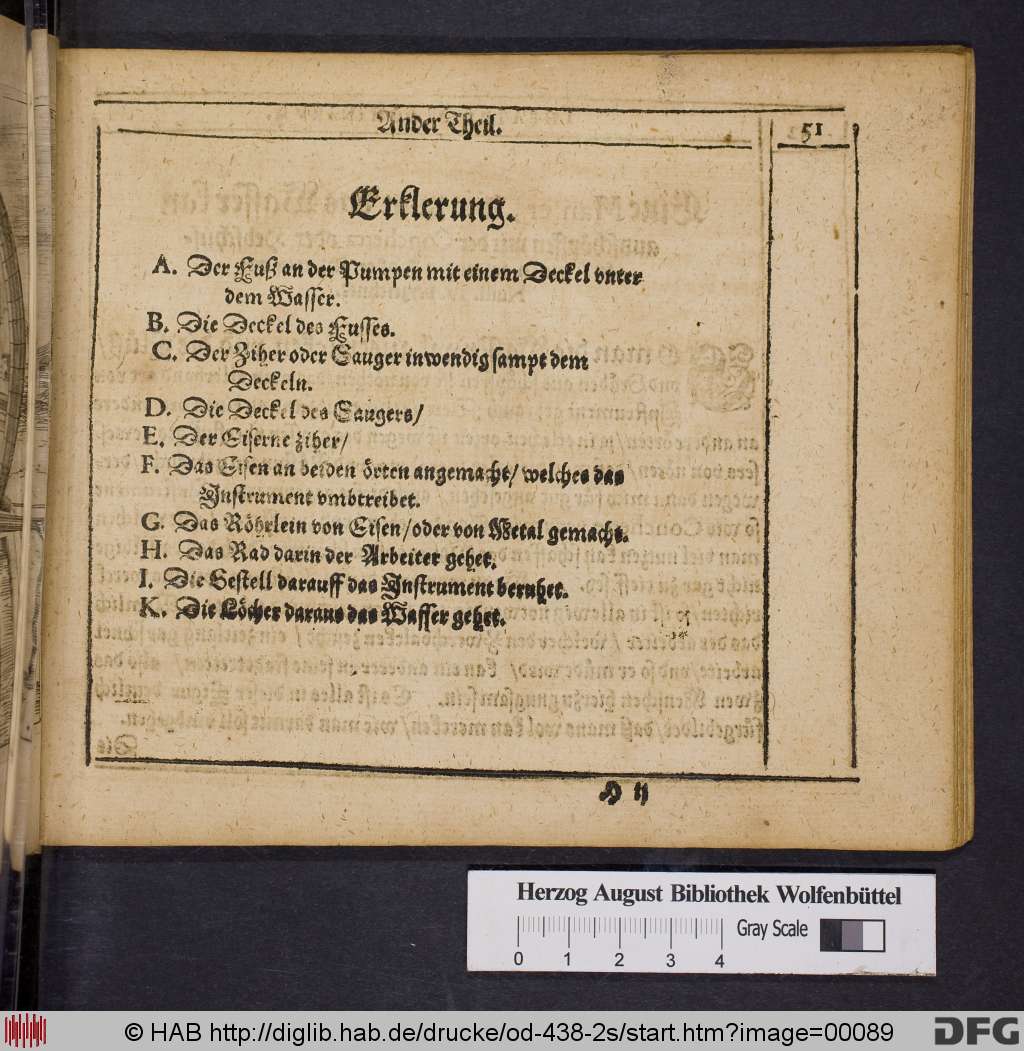 Ander Theil.
51
Erklerung.
A. Der Fuß an der Pumpen mit einem Deckel vnter
dem Wasser.
B. Die Deckel des Fusses.
C. Der Ziher oder Sauger inwendig sampt dem
Deckeln.
D. Die Deckel des Saugers/
E. Der Eiserne ziher/
F. Das Eisen an beiden örten angemacht/ welches das
Instrument vmbtreibet.
G. Das Röhrlein von Eisen/oder von Metal gemacht.
H. Das Rad darin der Arbeiter gehet.
I. Die Gestell darauff das Instrument beruhet.
K. Die Löcher daraus das Wasser gehet.
Herzog August Bibliothek Wolfenbüttel
Gray Scale
0 1 2 3 4
© HAB http://diglib.hab.de/drucke/od-438-2s/start.htm?image=00089
DFG